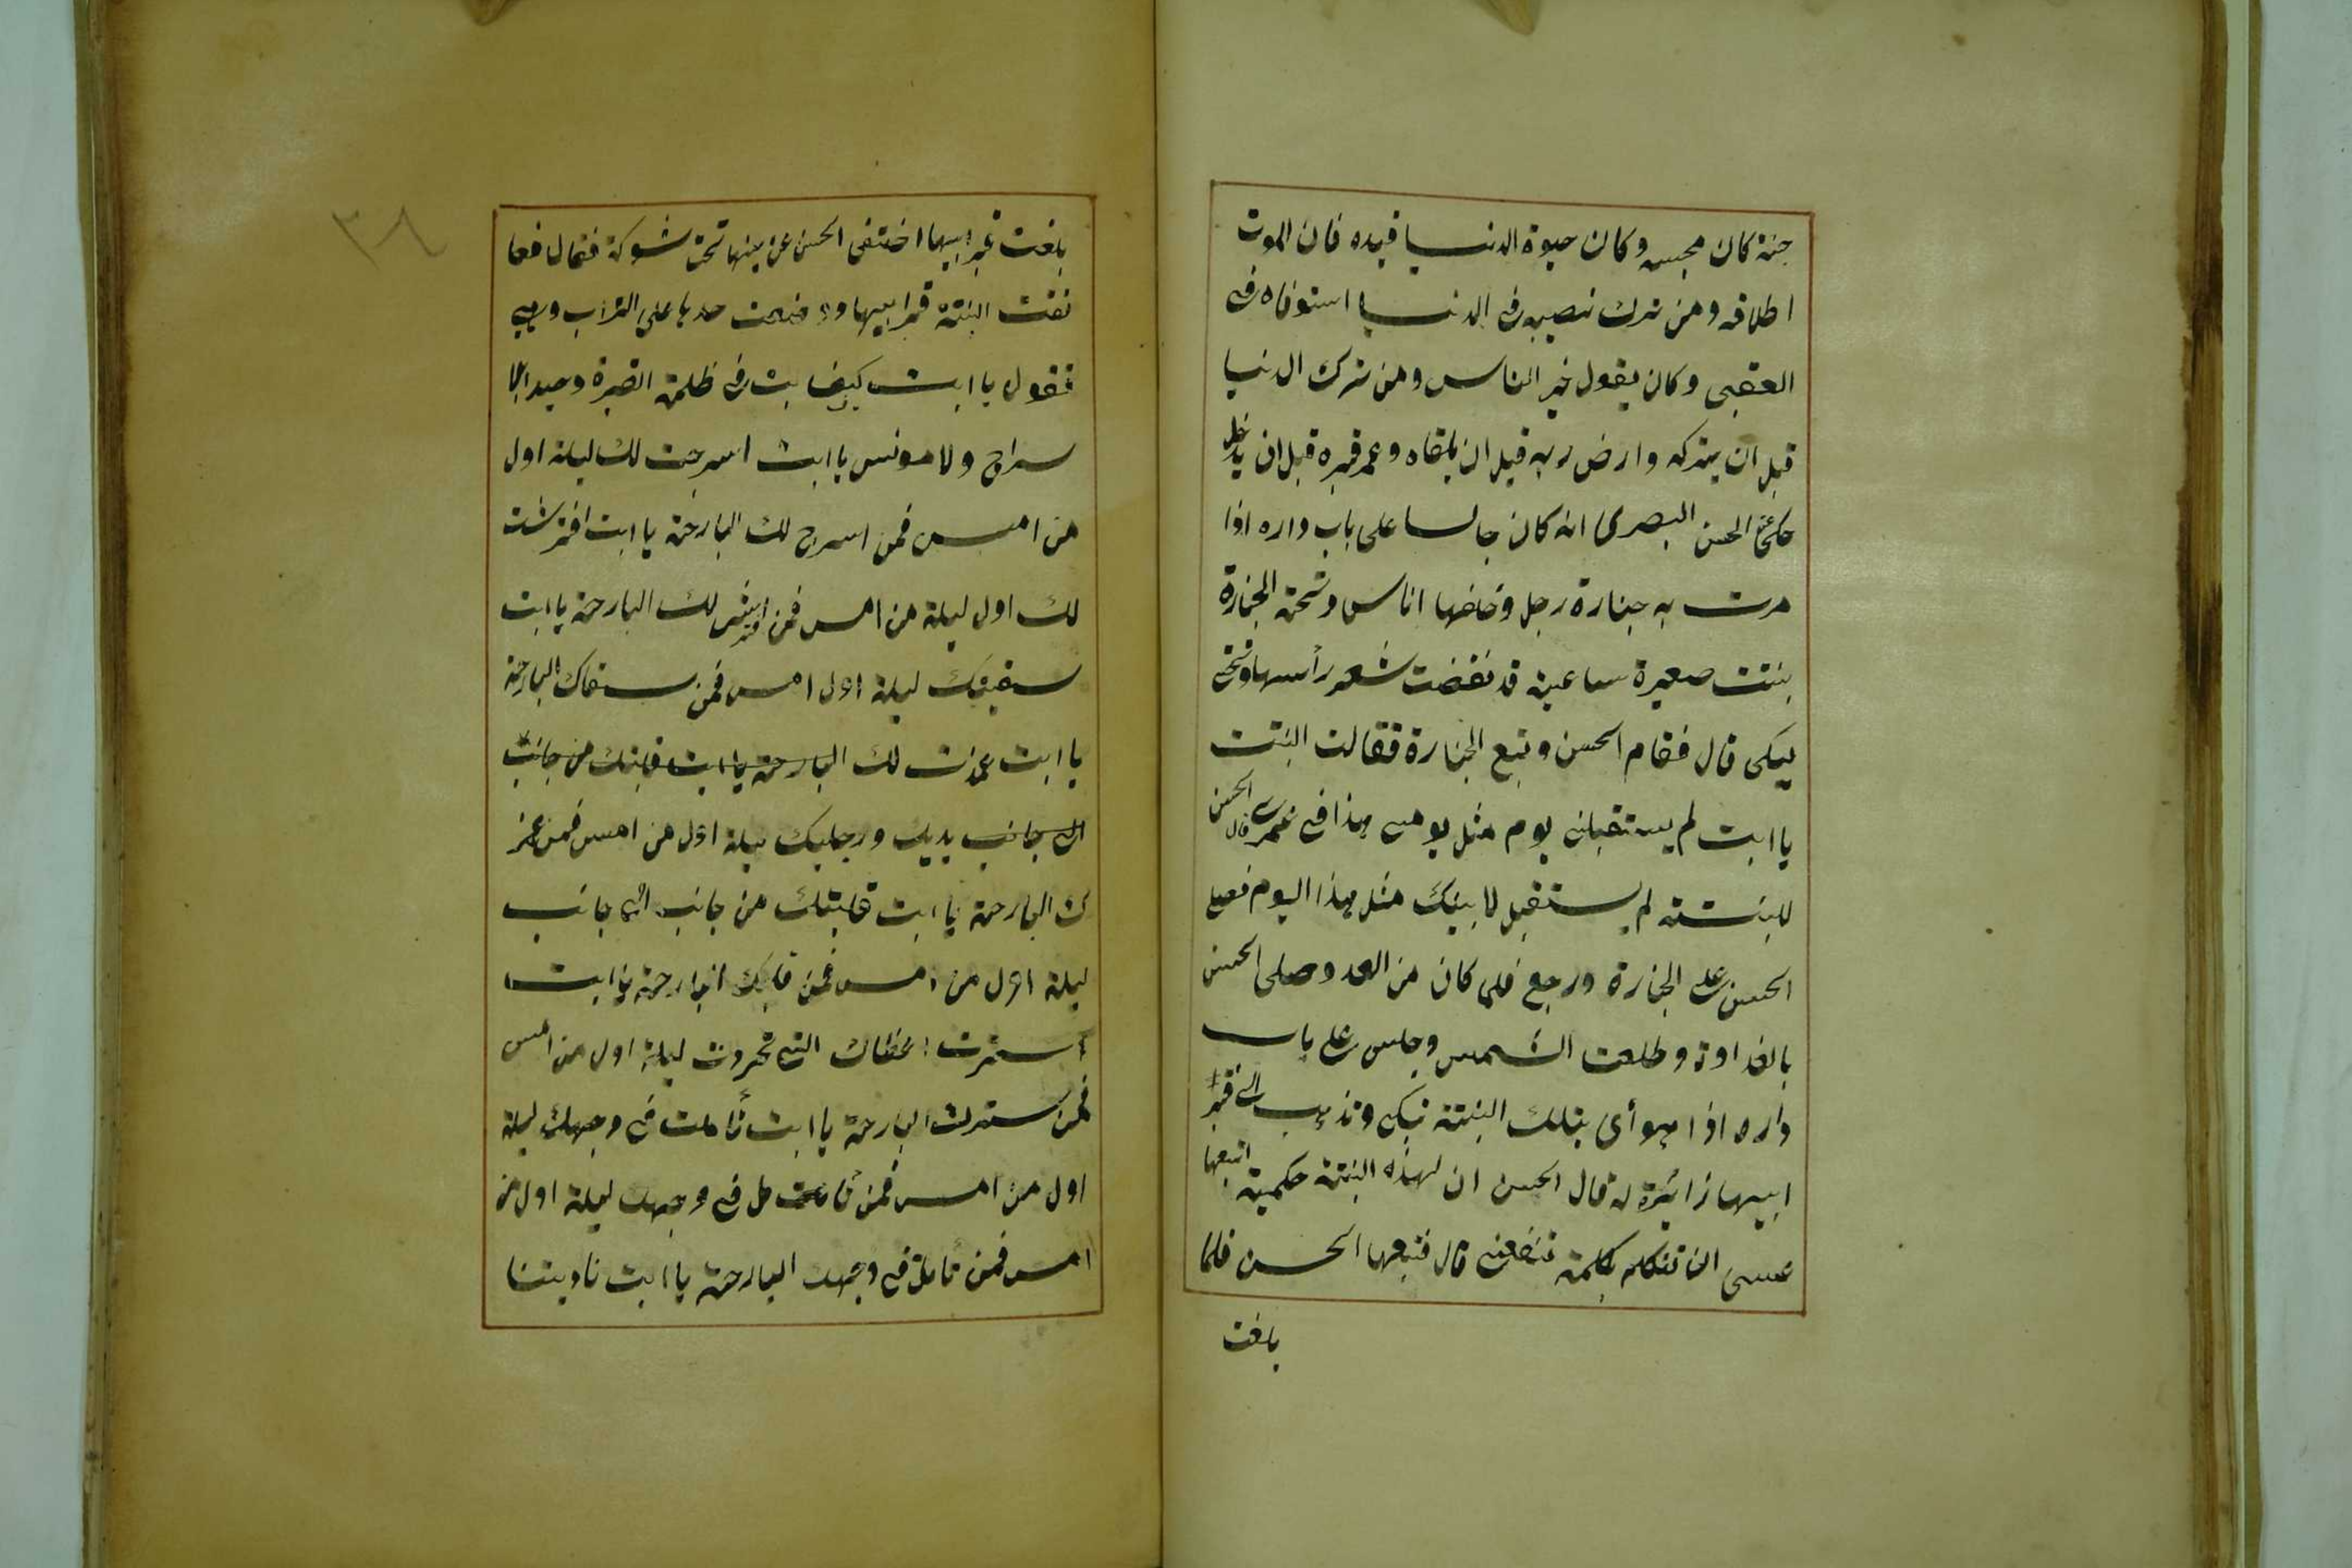 جنة كان محبسه وكان حيوة الدنيا قيده فان الموت
اطلاقه ومن ترك نصيبه فى الدنيا استوفاه فى
العقبى وكان يقول خير الناس ومن ترك الدنيا
قبل ان يتركه وارض ربه قبل ان يلقاه وعمر قبره قبل ان يدخل
حكى عن الحسن البصرى انه كان جالسا على باب داره اذا
مرت به جنازة رجل وخلفها اناس وتحت الجنازة
بنت صغيرة ساعية قد نقضت شعر رأسها وهى
يبكى قال فقام الحسن وتبع الجنازة فقالت البنت
يا ابت لم يستقبلنى يوم مثل يومى هذا فى عمرى قال الحسن
للبنته لم يستقبل لابيك مثل هذا اليوم فصلى
الحسن على الجنازة ورجع فلما كان من الغد وصلى الحسن
بالغداوة وطلعت الشمس وجلس على باب
داره اذا هو أى بتلك البنتة تبكى وتذهب الى قبر
ابيها زائرة له قال الحسن ان لهذه البنتة حكمية اتبعها
عسى ان تتكلم بكلمة تنفعنى قال فتبعها الحسن فلما
بلغت
٣٨
بلغت قبر ابيها اختفى الحسن عن عينها تحت شوكة فقال فعا
نقت البنتة قبر ابيها ووضعت خدها على التراب وهى
تقول يا ابت كيف بت فى ظلمة القبرة وحيدا بلا
سراج ولا مونس يا ابت اسرجت لك ليلة اول
من امس فمن اسرج لك البارحة يا ابت افترشت
لك اول ليلة من امس فمن افترش لك البارحة يا ابت
سقيتك ليلة اول امس فمن سقاك البارحة
يا ابت غمزت لك البارحة يا ابت قلبتك من جانب
الى جانب يديك ورجليك ليلة اول من امس فمن غمز
ك البارحة يا ابت قلبتك من جانب الى جانب
ليلة اول من امس فمن قلبك البارحة يا ابت
استرت اعطاك التى تحردت ليلة اول من امس
فمن سترك البارحة يا ابت تأملت فى وجهك ليلة
اول من امس فمن تأمل فى وجهك ليلة اول من
امس فمن تأمل فى وجهك البارحة يا ابت ناديتنا